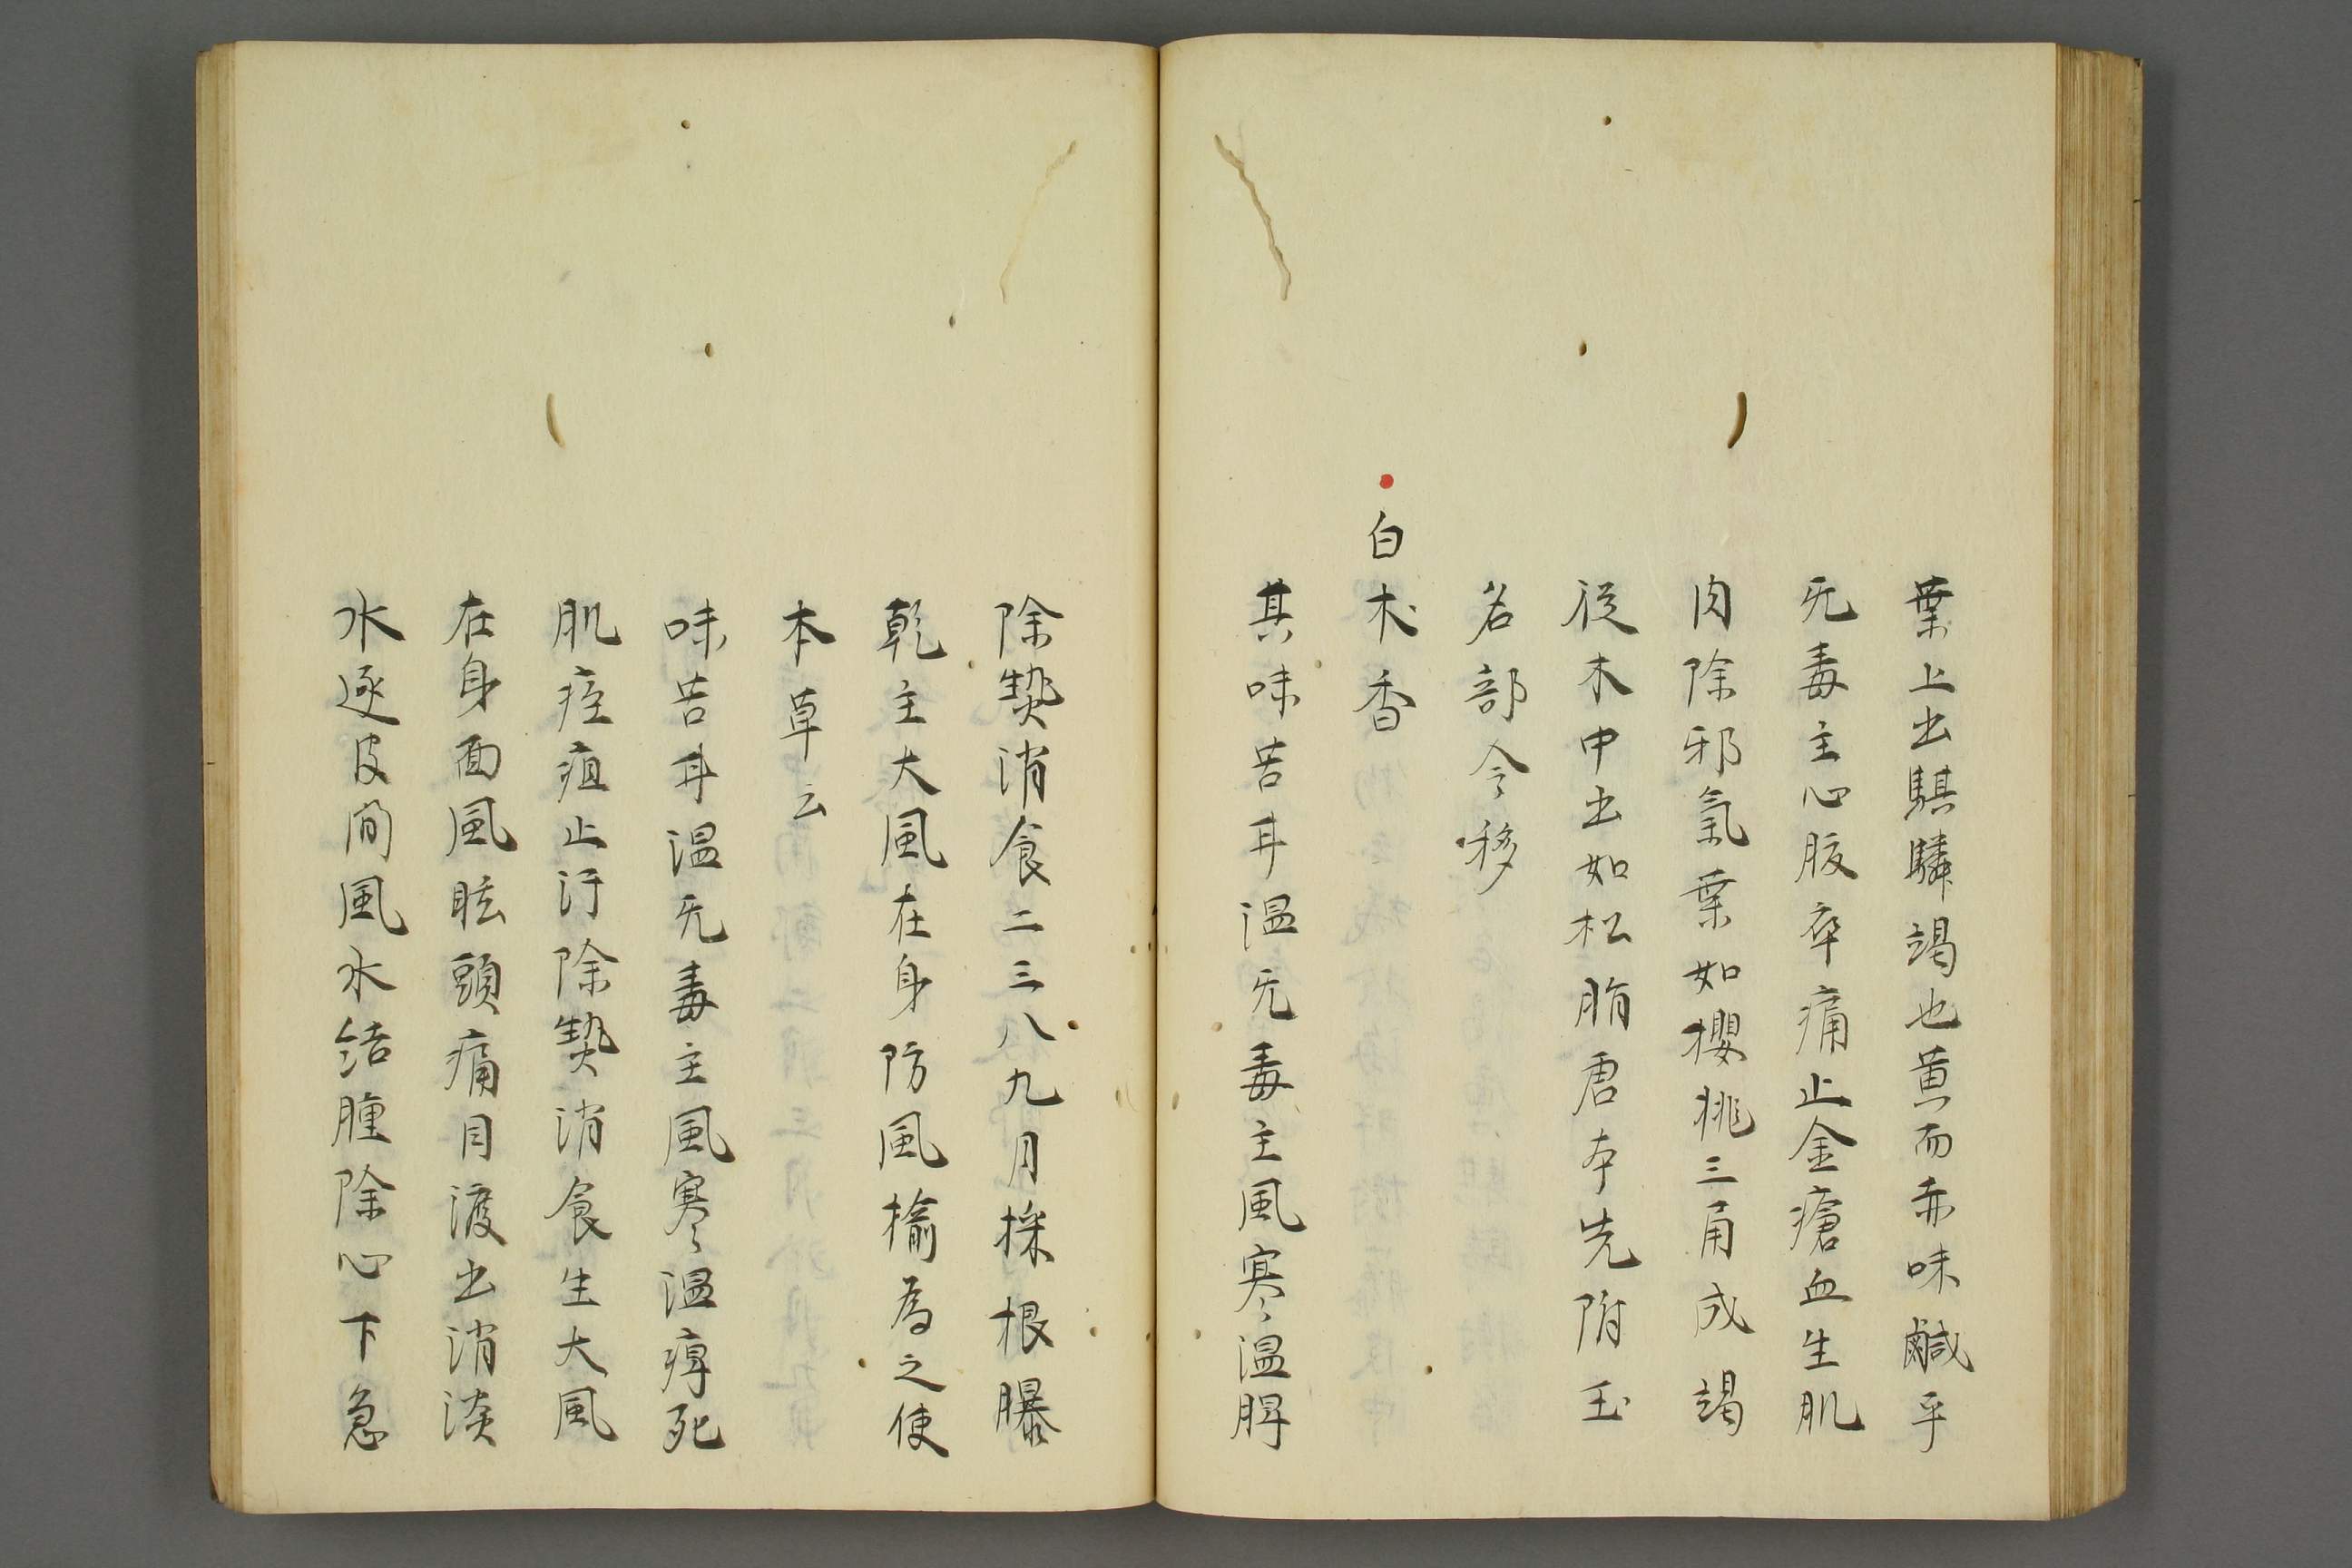 葉上出騏驎竭也黄而赤味鹹平
旡毒主心腹卒痛止金瘡血生肌
肉除邪氣葉如櫻桃三角成竭
從木中出如松脂唐本先附玉
名部今移
白术香
其味苦甘温旡毒主風寒温脾
除𤍠消食二三八九月採根曝
乾主大風在身防風榆為之使
本草云
味苦甘温旡毒主風寒温痺死
肌痓疽止汗除𤍠消食生大風
在身面風眩頭痛目淚出消淡
水逐皮間風水結腫除心下急